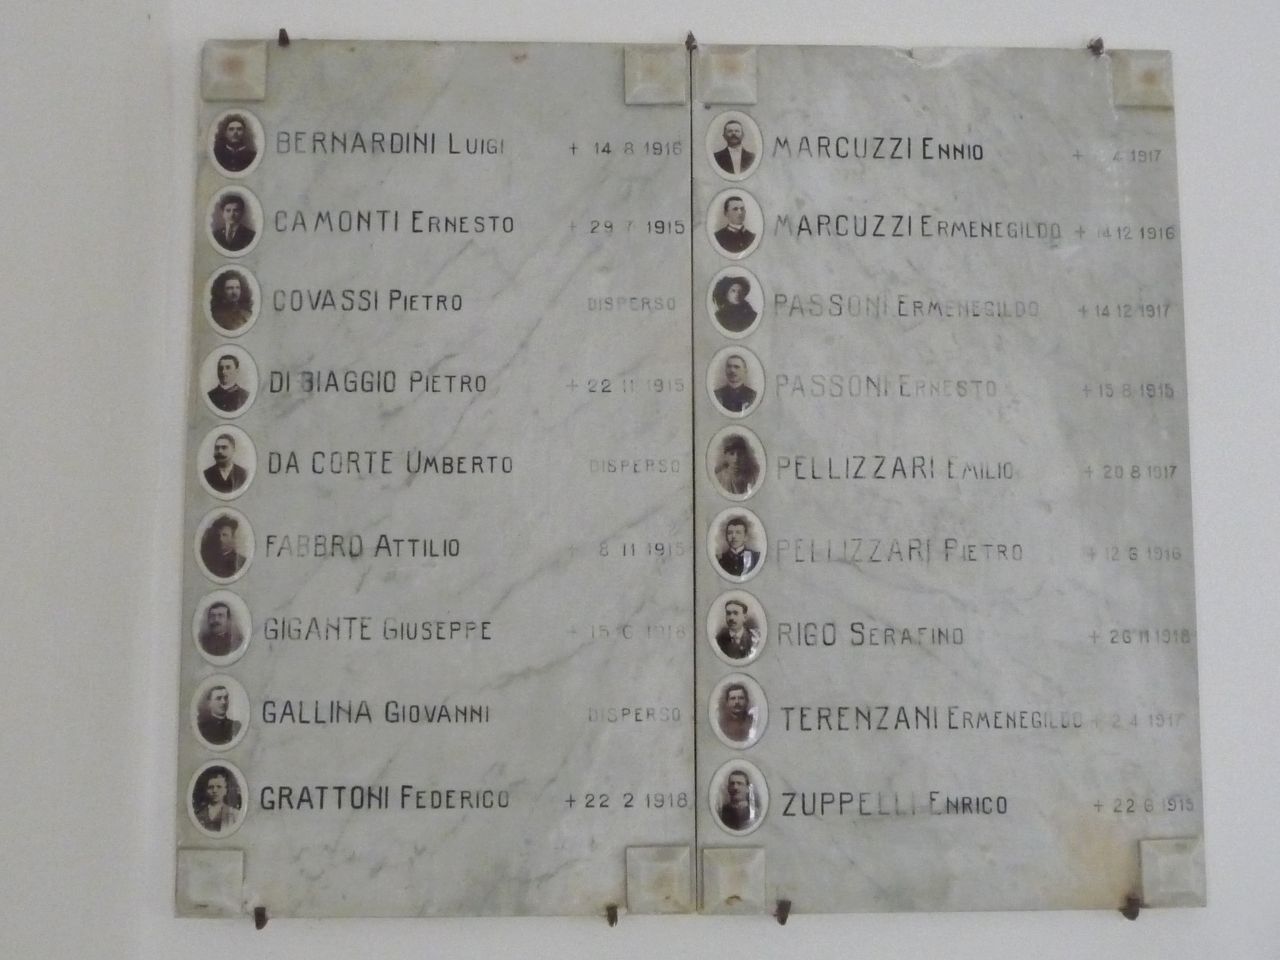 BERNARDINI LUIGI + 14 8 1916
CAMONTI ERNESTO + 29 7 1915
COVASSI PIETRO DISPERSO
DI BIAGGIO PIETRO + 22 11 1915
DA CORTE UMBERTO DISPERSO
FABBRO ATTILIO + 8 11 1915
GIGANTE GIUSEPPE + 15 6 1918
GALLINA GIOVANNI DISPERSO
GRATTONI FEDERICO + 22 2 1918
MARCUZZI ENNIO + 4 1917
MARCUZZI ERMENEGILDO + 14 12 1916
PASSONI ERMENEGILDO + 14 12 1917
PASSONI ERNESTO + 15 8 1915
PELLIZZARI EMILIO + 20 8 1917
PELLIZZARI PIETRO + 12 6 1916
RIGO SERAFINO + 26 11 1918
TERENZANI ERMENEGILDO + 2 4 1917
ZUPPELLI ENRICO + 22 6 1915